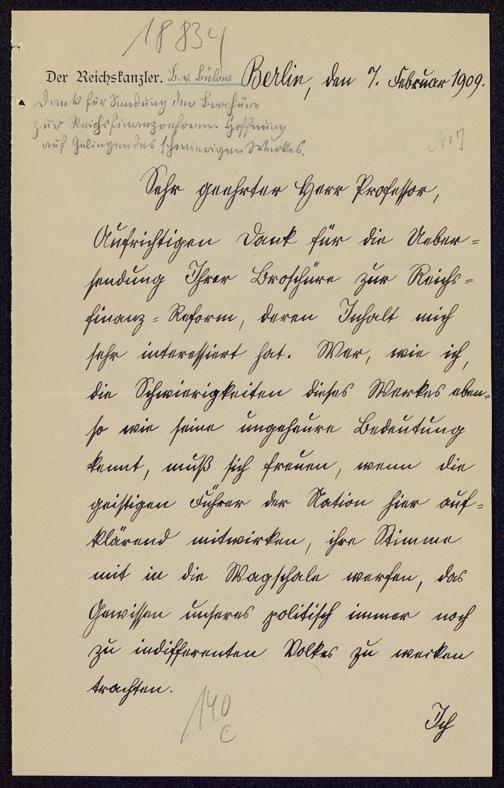 18834
Der Reichskanzler. B. v. Bülow Berlin, den 7. Februar 1909.
Dank für Sendung der Broschüre
zur Reichsfinanzreform. Hoffnung
auf Gelingen des schwierigen Werkes.
Sehr geehrter Herr Professor,
Aufrichtigen Dank für die Ueber=
sendung Ihrer Broschüre zur Reichs=
finanz=Reform, deren Inhalt mich
sehr interessiert hat. Wer, wie ich,
die Schwierigkeiten dieses Werkes eben=
so wie seine ungeheure Bedeutung
kennt, muß sich freuen, wenn die
geistigen Führer der Nation hier auf=
klärend mitwirken, ihre Stimme
mit in die Wagschale werfen, das
Gewissen unseres politisch immer noch
zu indifferenten Volkes zu wecken
trachten.
140
c
Ich